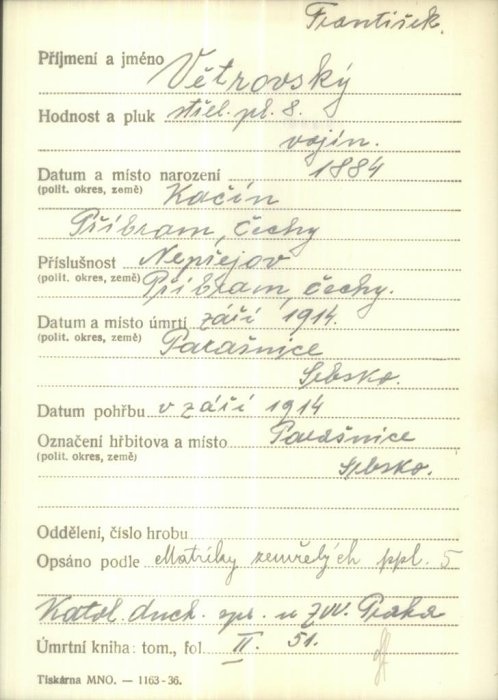 František.
Příjmení a jméno Větrovský
Hodnost a pluk střel. pl. 8.
vojín.
Datum a místo narození 1884
(polit. okres, země) Kačín
Příbram, Čechy
Příslušnost Nepřejov
(polit. okres, země) Příbram, Čechy.
Datum a místo úmrtí září 1914.
(polit. okres, země) Parašnice
Srbsko.
Datum pohřbu v září 1914
Označení hřbitova a místo Parašnice
(polit. okres, země) Srbsko.
Oddělení, číslo hrobu
Opsáno podle Matriky zemřelých ppl. 5
Katol. duch. spr. u ZVV. Praha
Úmrtní kniha: tom., fol II. 51.
Tiskárna MNO. — 1163-36.